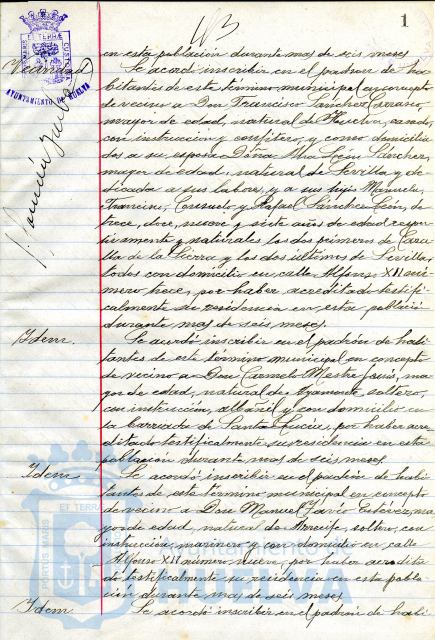 1
en esta población durante mas de seis meses
Vecindad
Se acordó inscribir en el padrón de ha-
bitantes de este término municipal en concepto
de vecino a Don Francisco Sánchez
mayor de edad, natural de Huelva, casado,
con instrucción y confitero, y como domicilia-
dos a su esposa Dña. Ana León Sánchez,
mayor de edad, natural de Sevilla y de-
dicada a sus labores, y a sus hijos Manuel,
Francisco, Consuelo y Rafael Sánchez León, de
trece, doce, nueve y siete años de edad respec-
tivamente y naturales los dos primeros de
de la Sierra y los dos últimos de Sevilla,
todos con domicilio en calle Alfonso XII nú-
mero trece, por haber acreditado testifi-
calmente su residencia en esta población
durante mas de seis meses.
Idem.
Se acordó inscribir en el padrón de habi-
tantes de este término municipal en concepto
de vecino a Don Carmelo Mestre Jesús, ma-
yor de edad, natural de Ayamonte, soltero,
con instrucción, albañil y con domicilio en
la barriada de Santa Lucía, por haber acre-
ditado testificalmente su residencia en esta
población durante mas de seis meses.
Idem.
Se acordó inscribir en el padrón de habi-
tantes de este término municipal en concepto
de vecino a Don Manuel Estévez, ma-
yor de edad, natural de soltero, con
instrucción, marinero y con domicilio en calle
Alfonso XII número nueve, por haber acredita-
do testificalmente su residencia en esta pobla-
ción durante mas de seis meses.
Idem
Se acordó inscribir en el padrón de habi-
AYUNTAMIENTO DE HUELVA
PORTUS MARIS ET TERRAE CUSTODIA
Ayuntamiento de
HUELVA